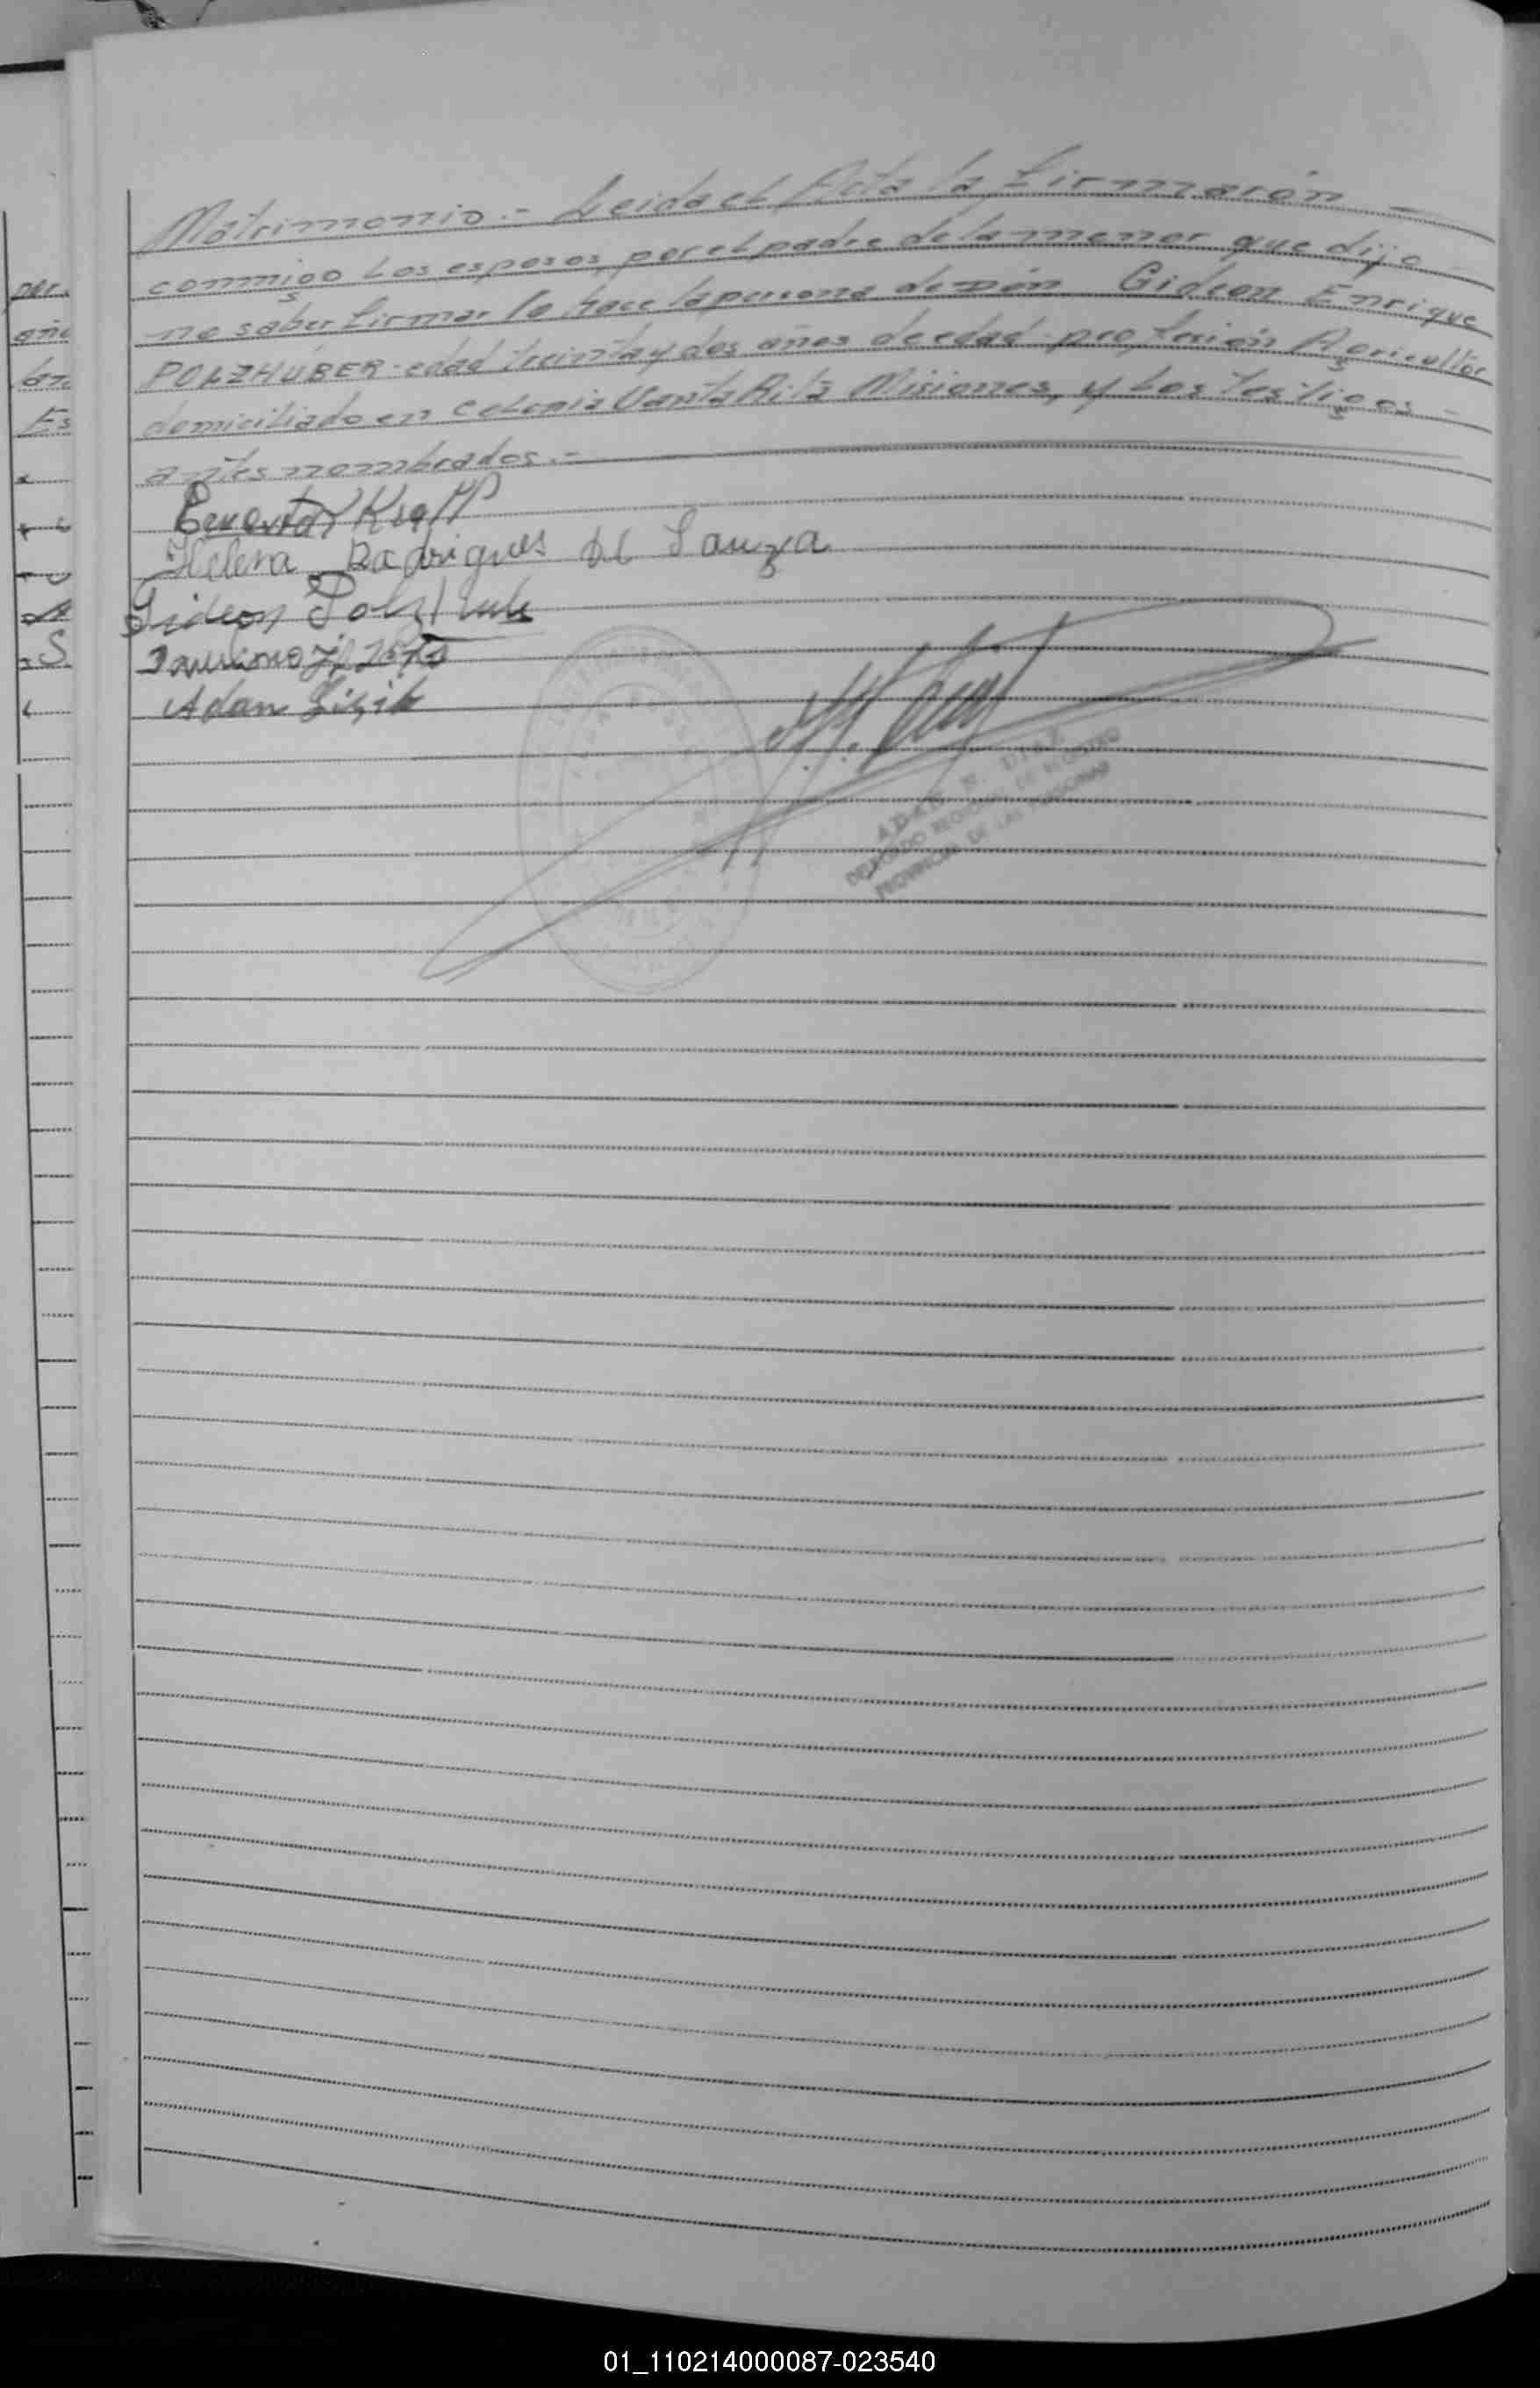 Matrimonio.- Leida el Acta la firmarón -
conmigo los esposos, por el padre de la menor que dijo -
no saber firmar lo hace la persona de Don Gideon Enrique
POLZHUBER - edad treinta y dos años de edad - profesión Agricultor
domiciliado en Colonia Santa Rita Misiones, y Los Testigos -
antes nombrados.-
Krapp
Helena Rodrigues de Souza
Gideon
Adan
ADAN N. DIAZ
DELEGADO REGIONAL DE REGISTRO
PROVINCIAL DE LAS PERSONAS
por.
añ
Es
S
01_110214000087-023540